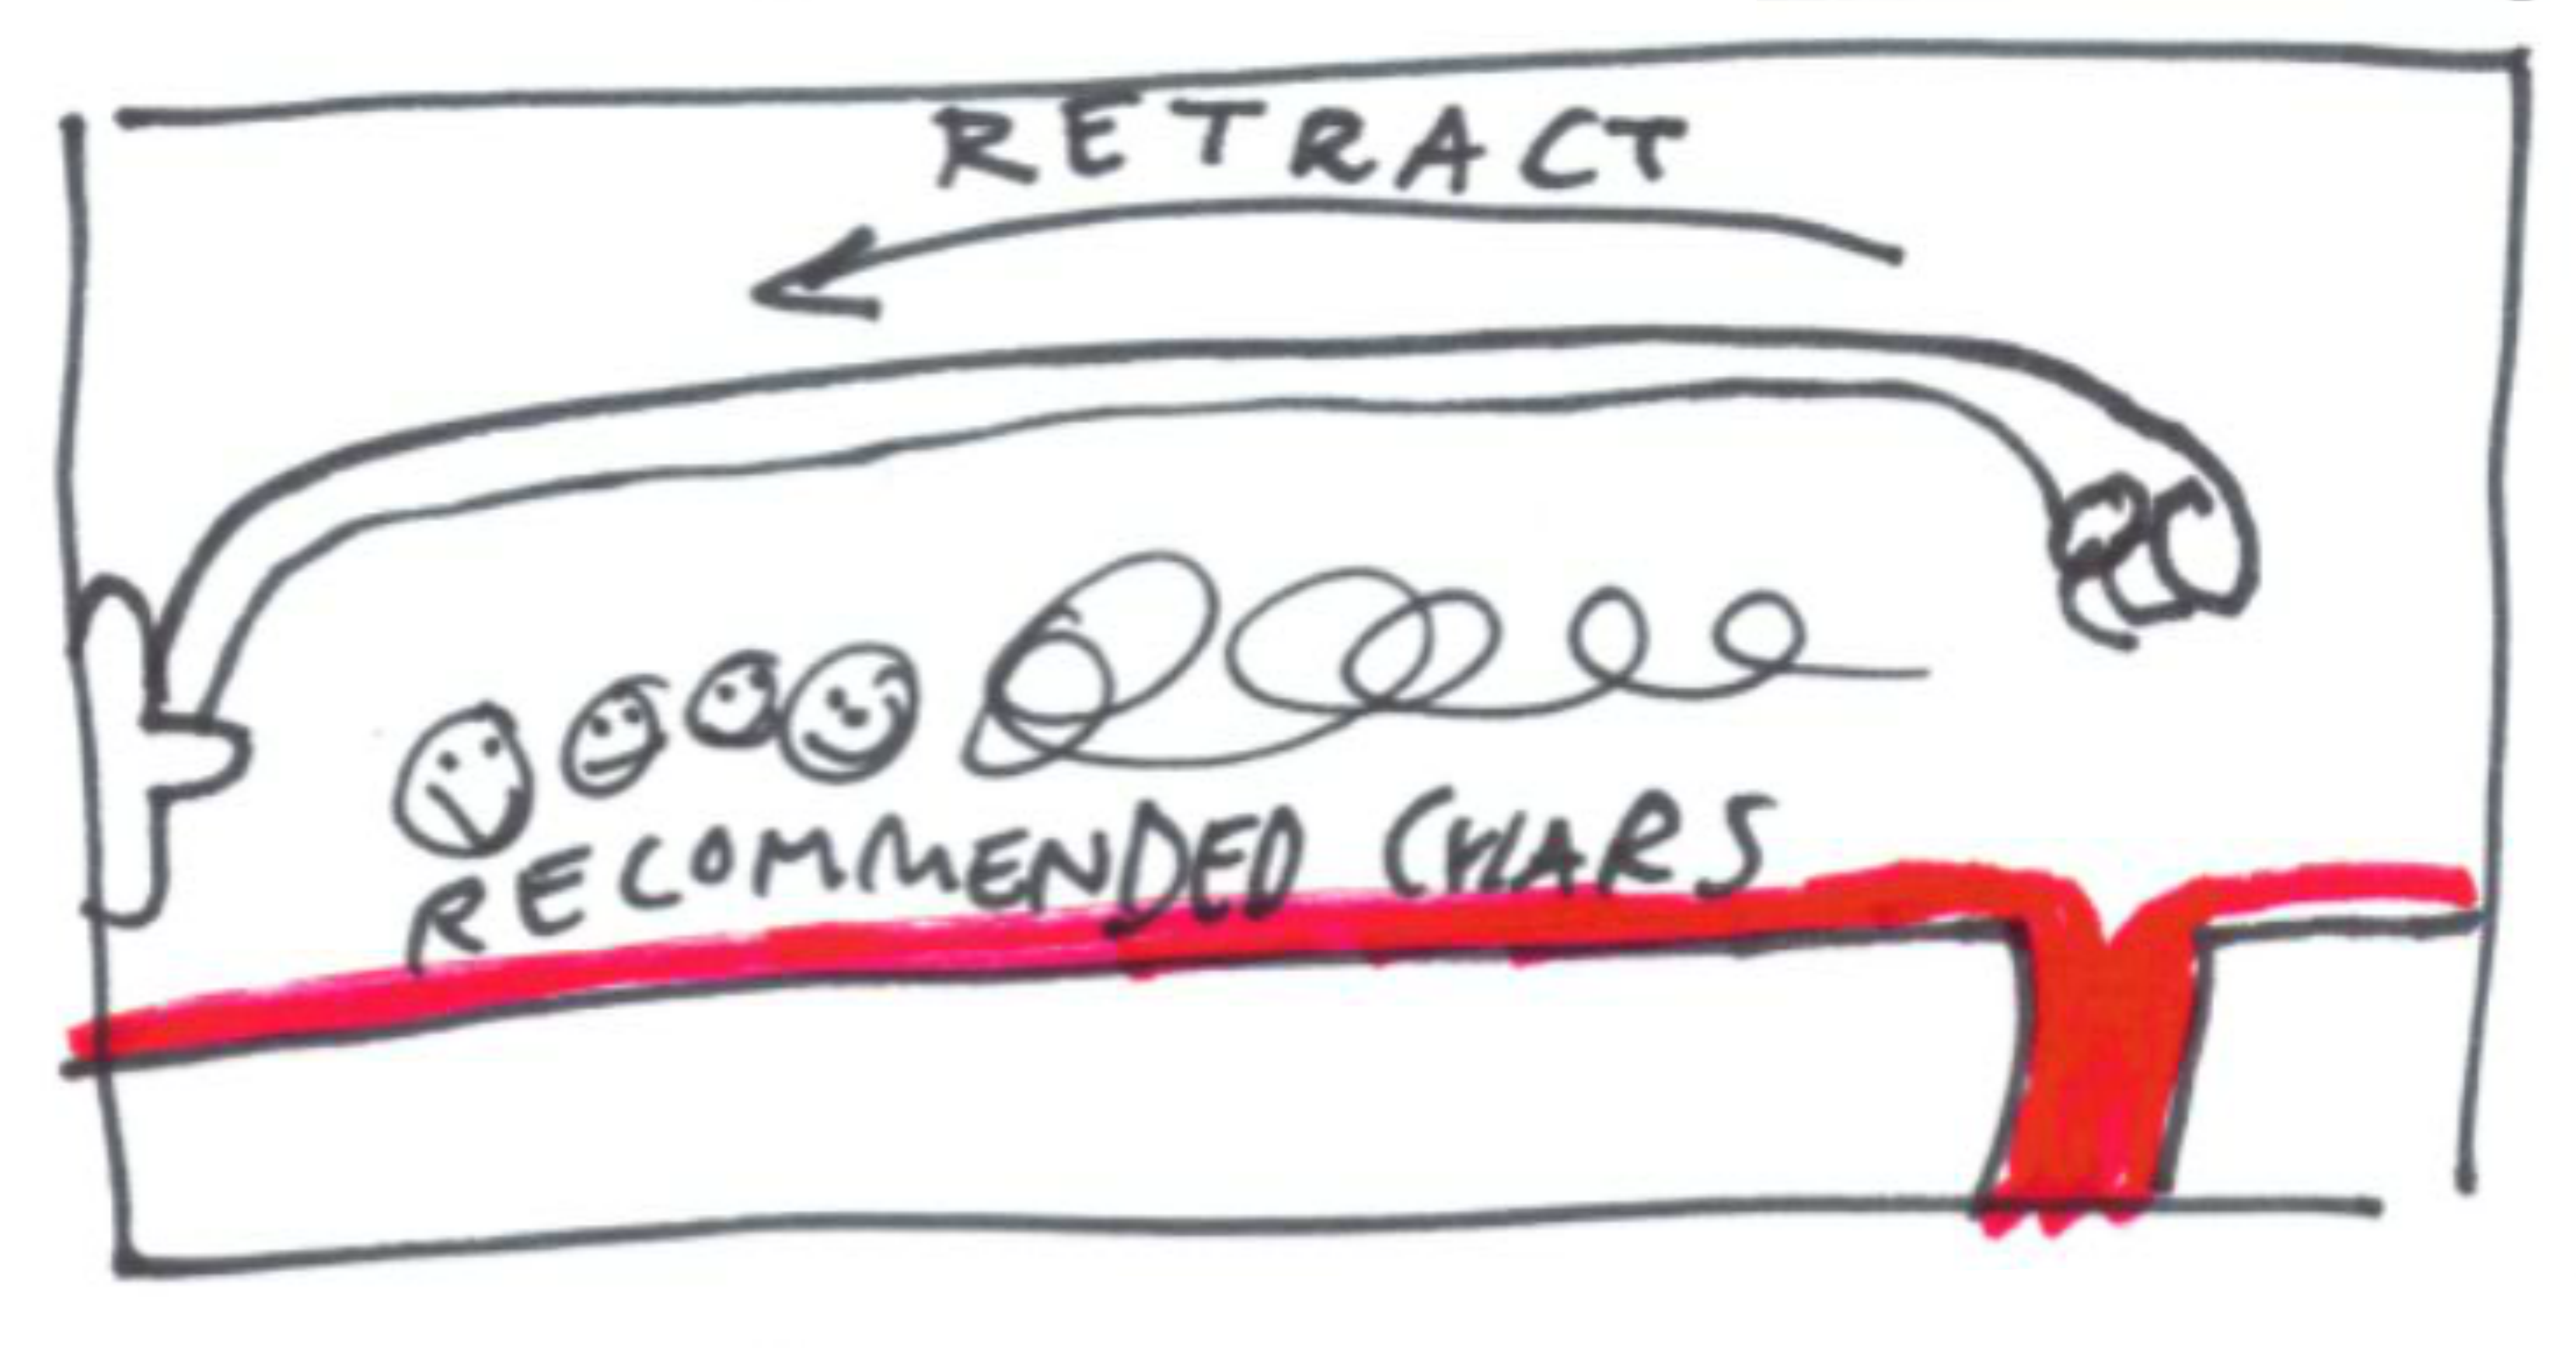 RETRACT
RECOMMENDED CHARS